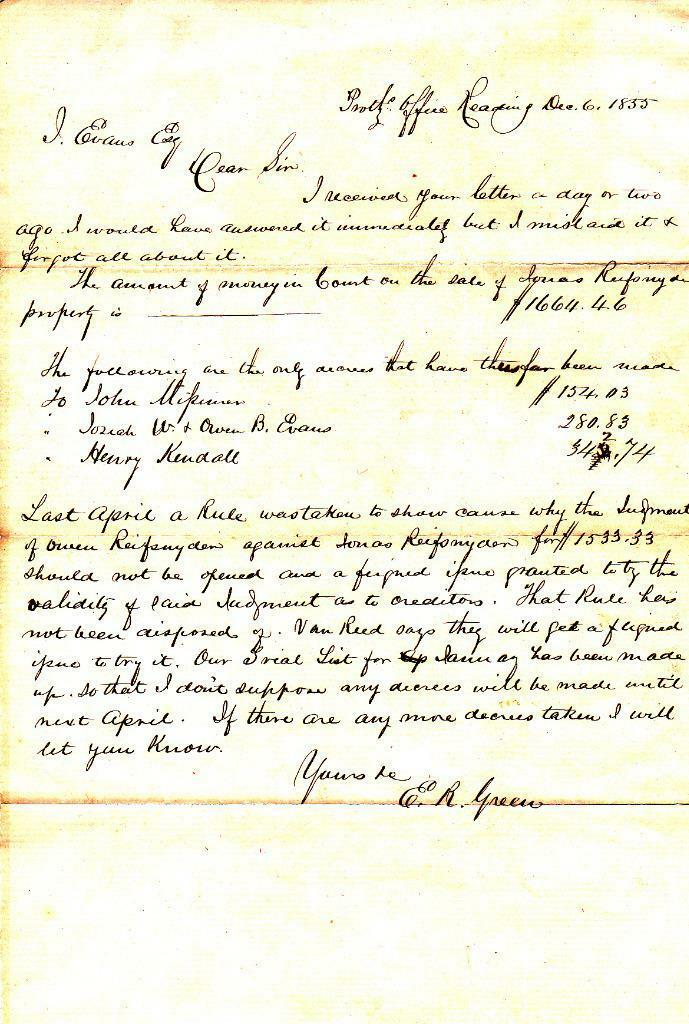 Prothy. Office Reading Dec. 6. 1855
I. Evans Esq
Dear Sir
I received your letter a day or two
ago. I would have answered it immediately but I mislaid it &
forgot all about it.
The amount of money in Court on the sale of Jonas Reifsnyder
property is $1664.46
The following are the only decrees that have thus far been made
To John Missimer $154.03
" Josiah W. & Owen B. Evans 280.83
" Henry Kendall 342.74
Last April a Rule was taken to show cause why the Judgment
of Owen Reifsnyder against Jonas Reifsnyder for $1533.33
should not be opened and a feigned issue granted to try the
validity of said Judgment as to creditors. That Rule has
not been disposed of. Van Reed says they will get a feigned
issue to try it. Our Trial List for January has been made
up. so that I dont suppose any decrees will be made until
next April. If there are any more decrees taken I will
let you Know.
Yours &c
E. R. Green